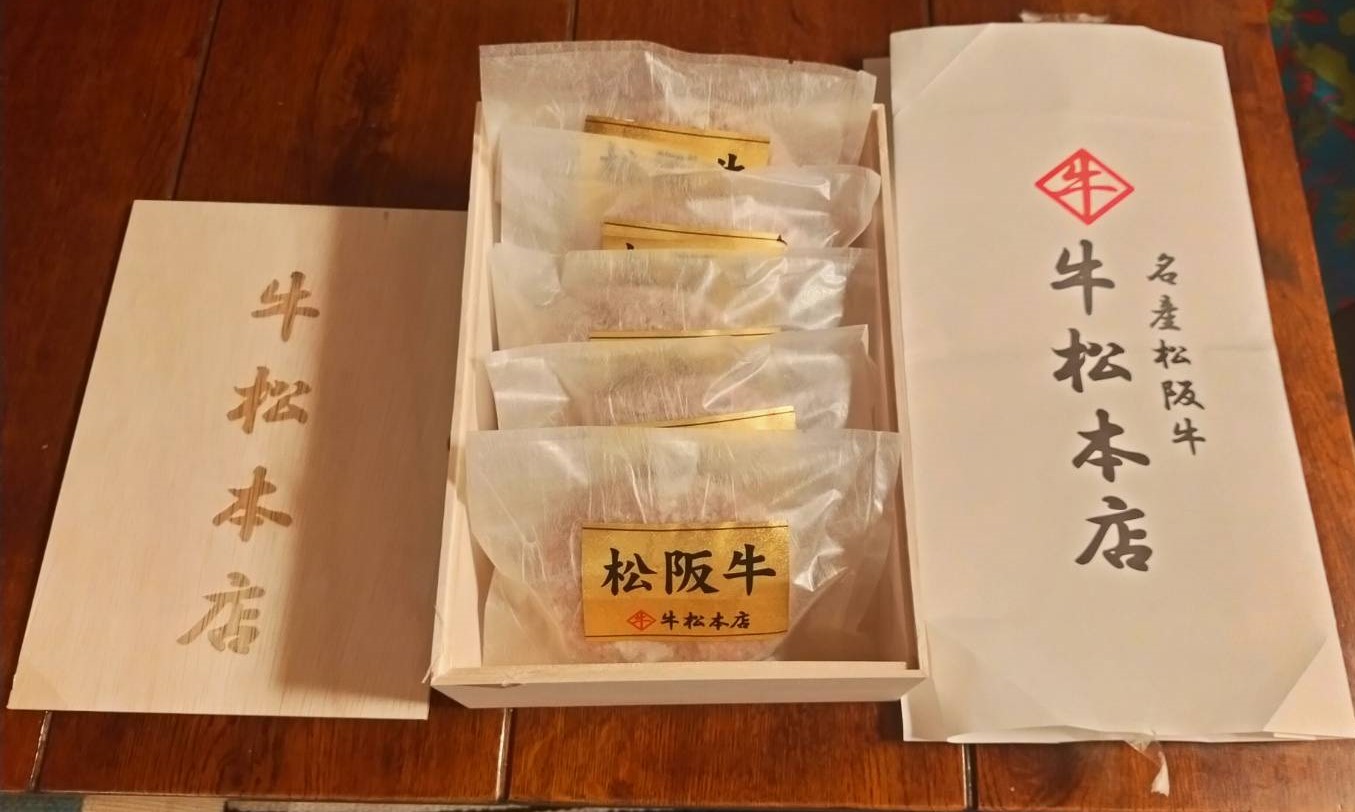 牛松本店
松阪牛
牛 牛松本店
牛
名産松阪牛
牛松本店